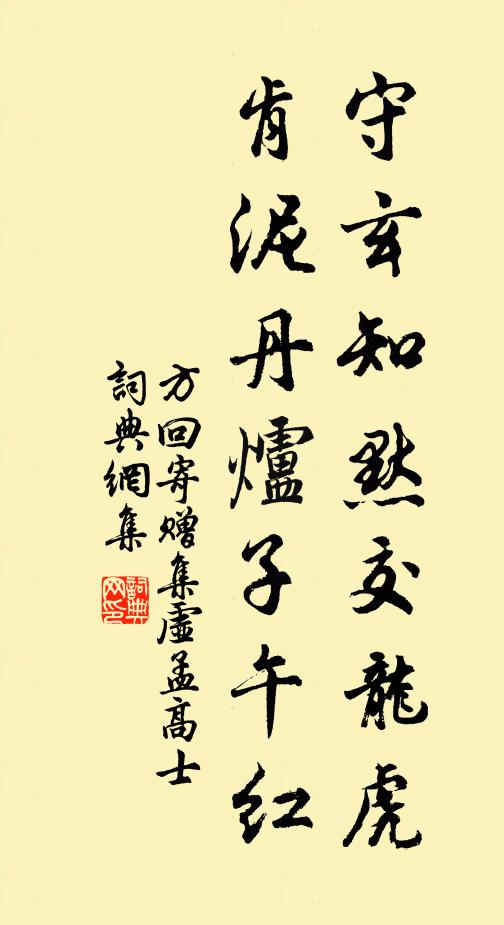 守玄知默交龍虎
肯泥丹爐子午紅
方回寄贈集虛孟高士
詞典網集
詞典網印